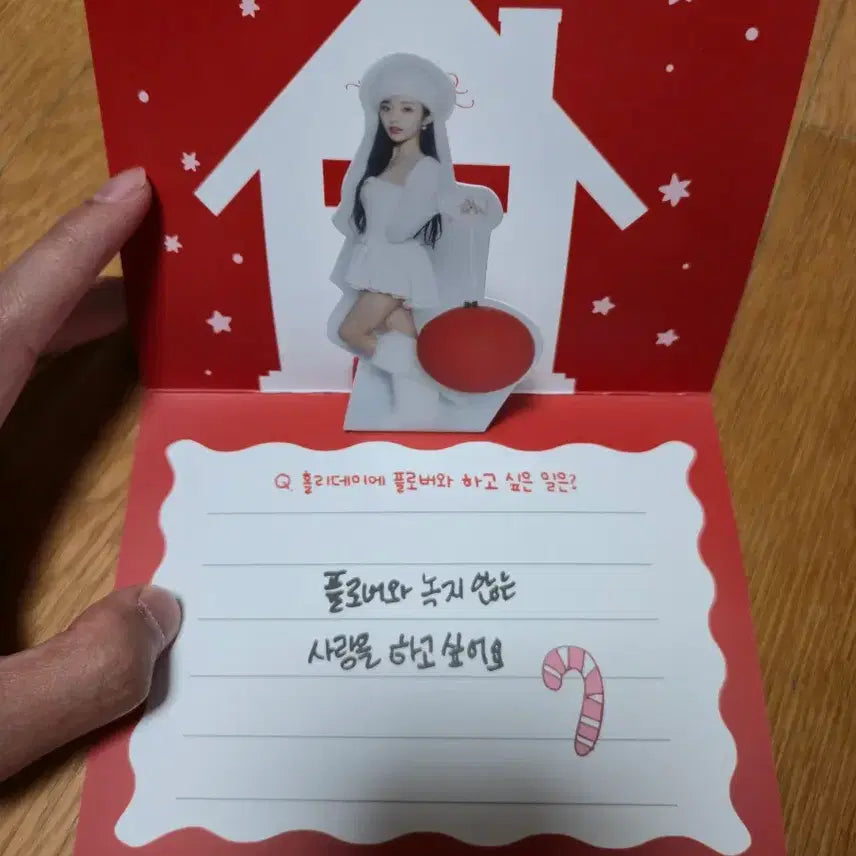 Q. 홀리데이에 플로버와 하고 싶은 일은?
플로버와 녹지 않는
사랑을 하고 싶어요